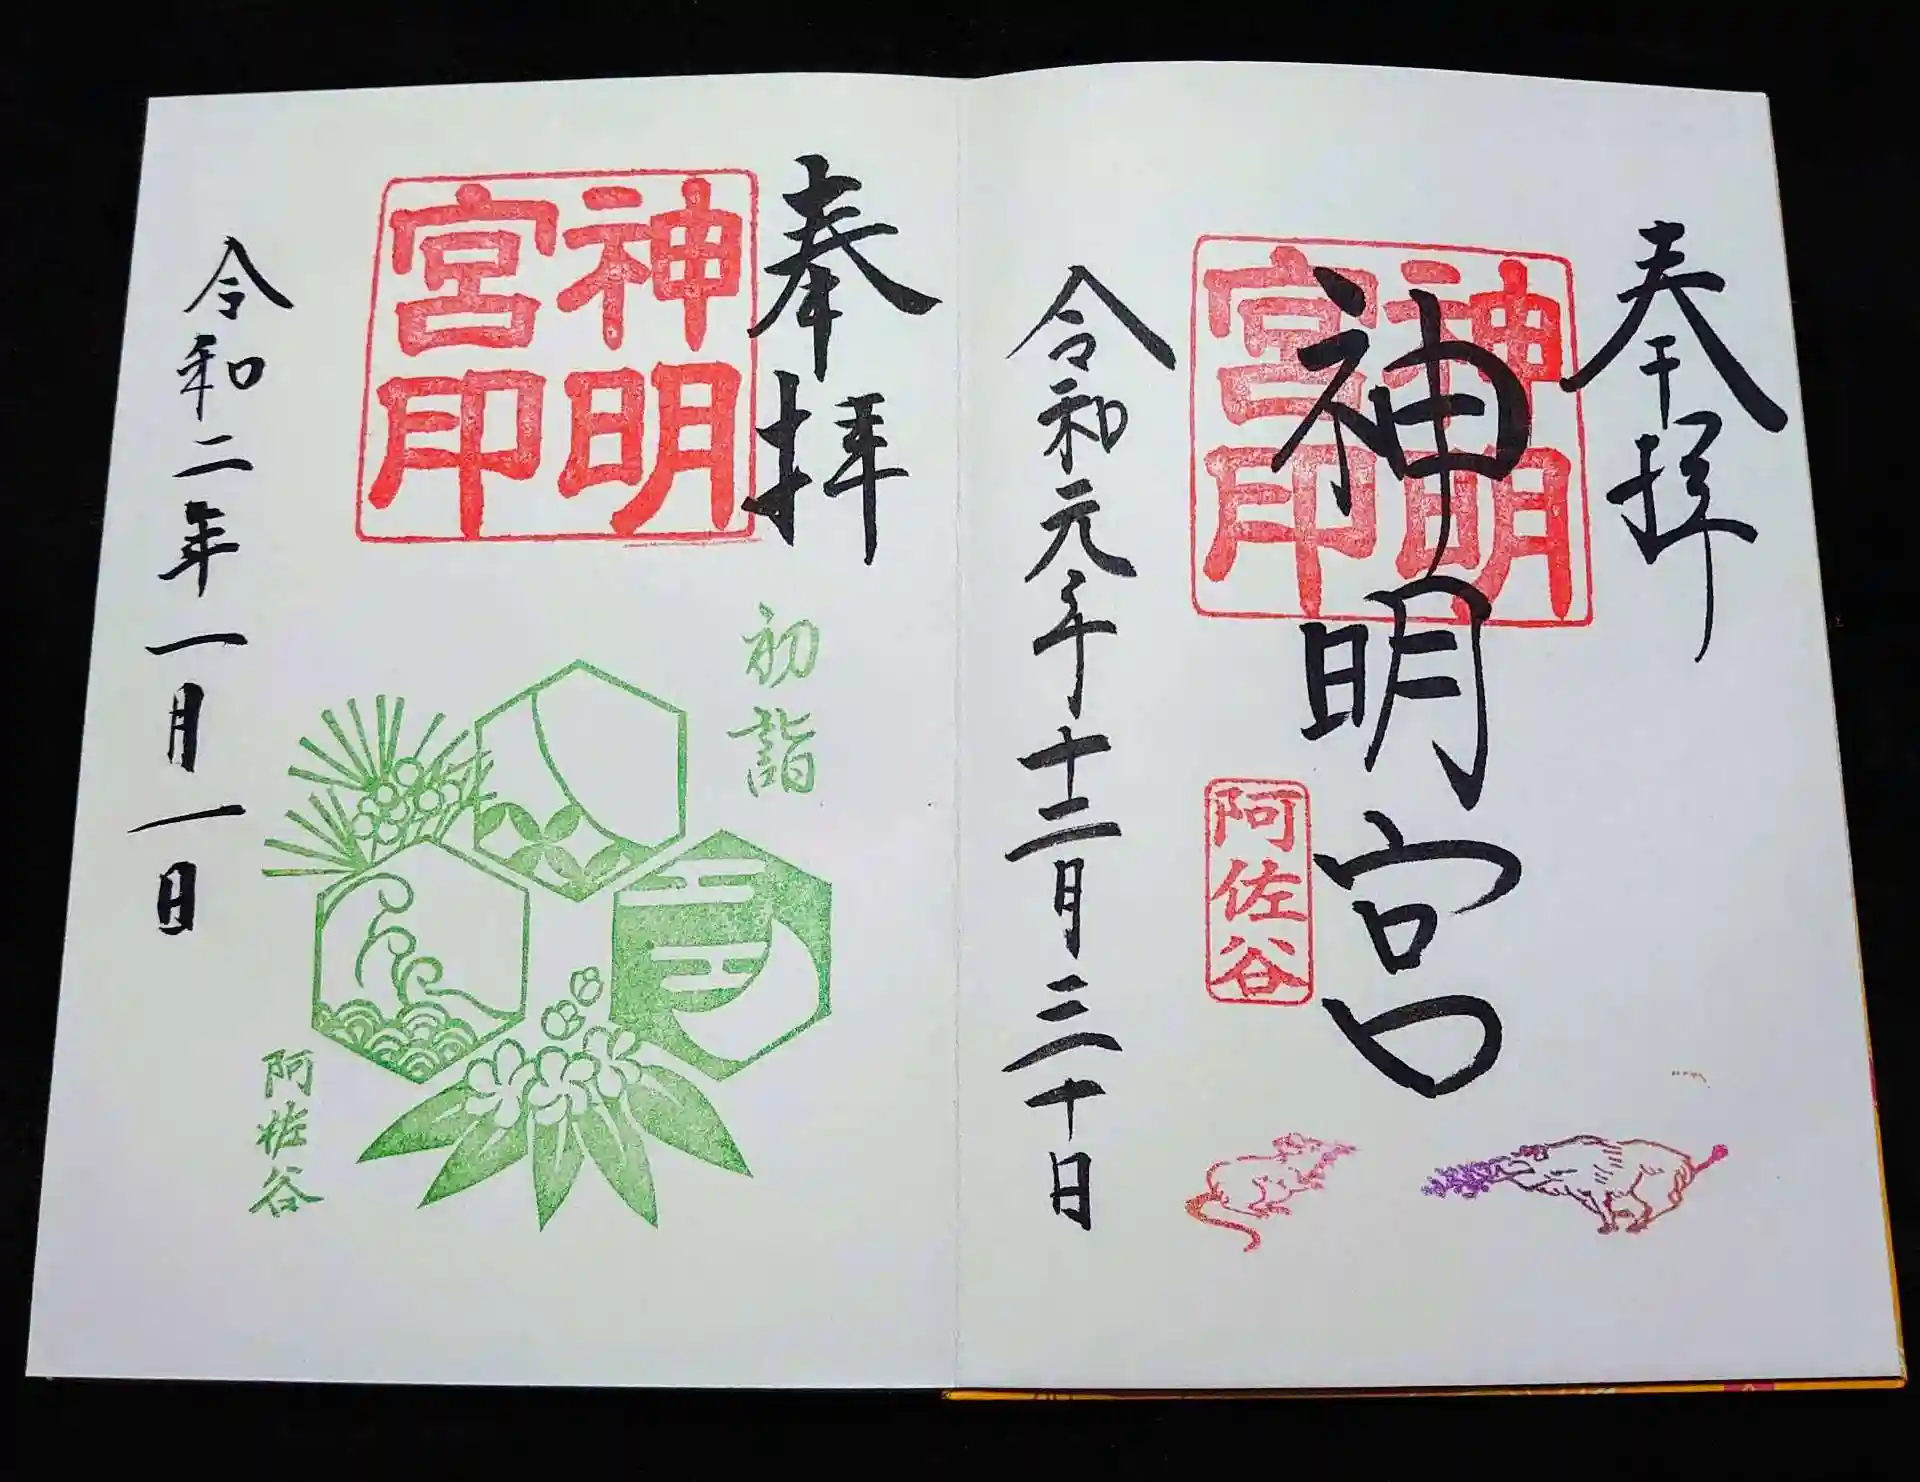 奉拝
神明宮印
神明宮
阿佐谷
令和元年十二月三十日
奉拝
神明宮印
初詣
阿佐谷
令和二年一月一日